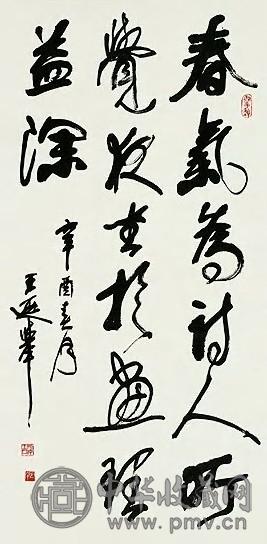 春氣為詩人所
覺夜坐於畫理
益深
辛酉春月
王遐舉
中华收藏网
www.pmv.cn